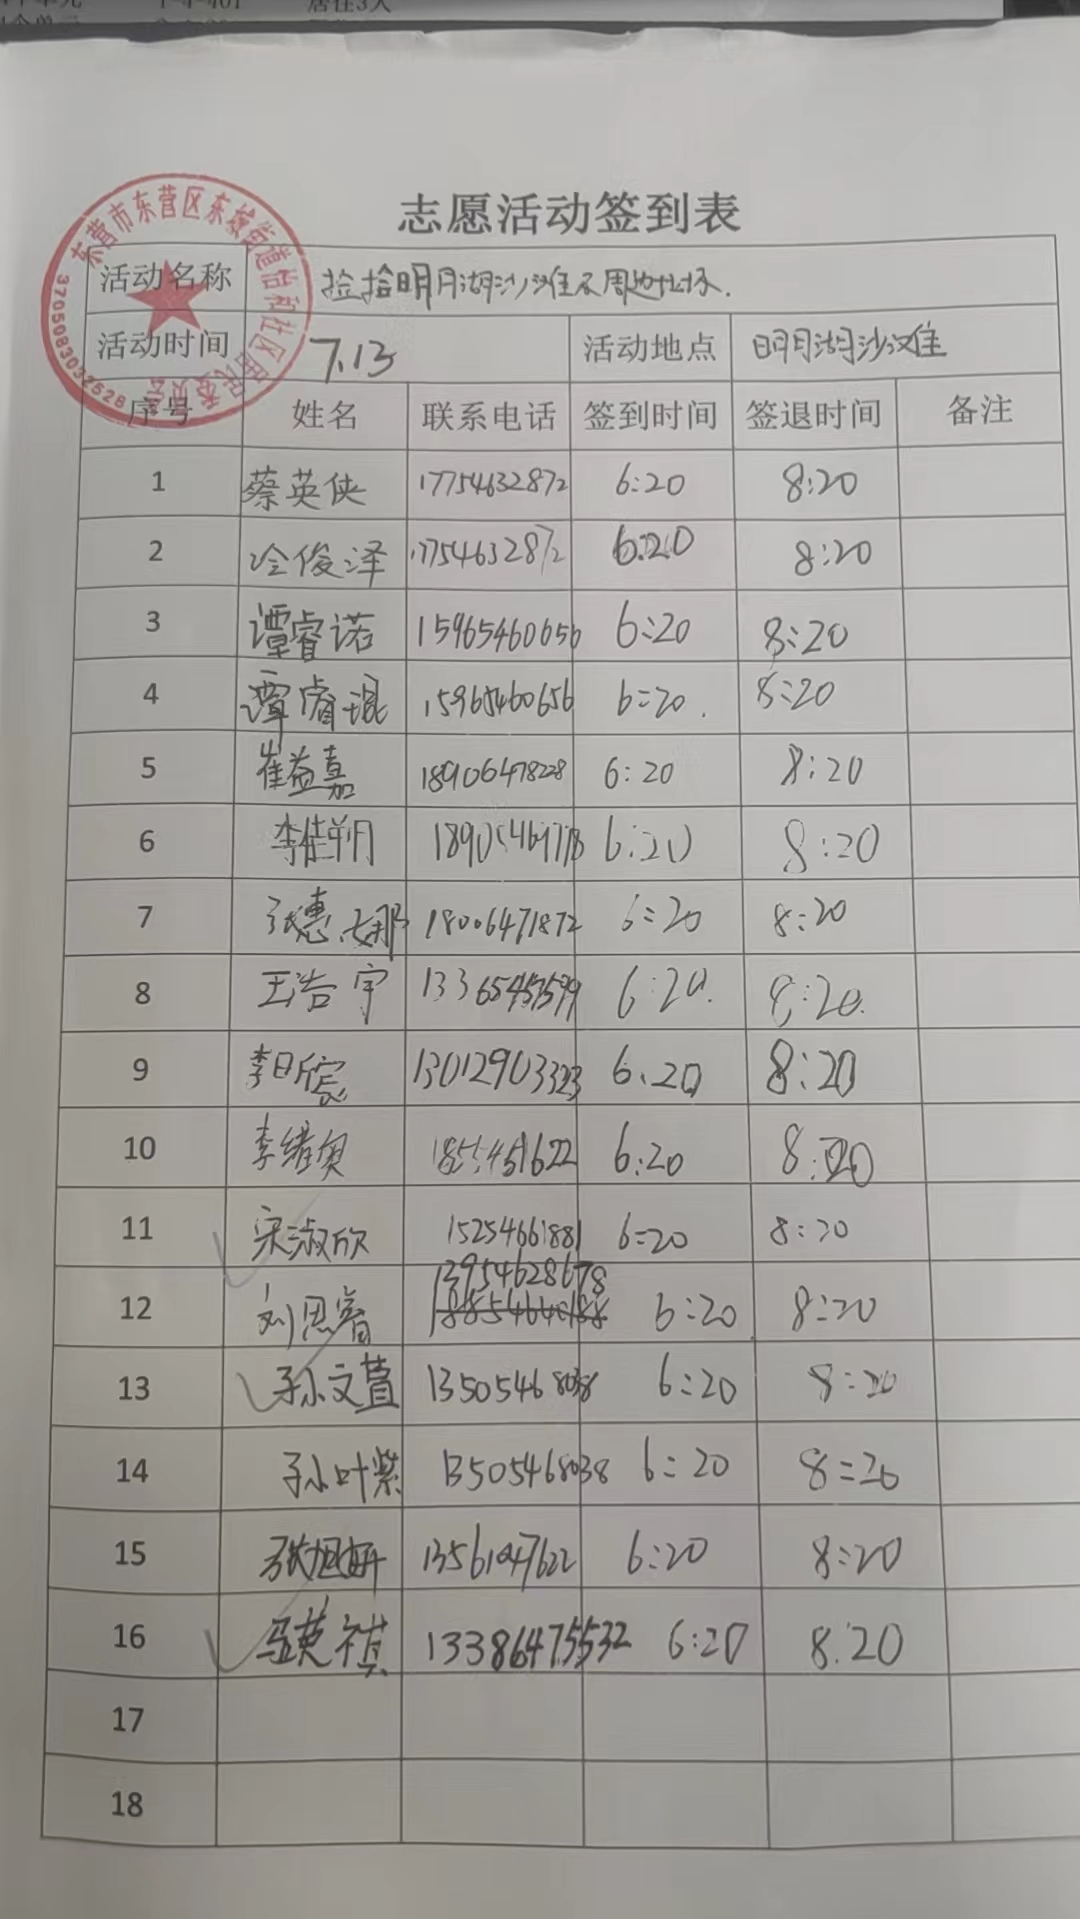 志愿活动签到表
东营市东营区东城街道怡和社区居民委员会
3705083032528
活动名称 捡拾明月湖沙滩及周边垃圾.
活动时间 7.13 活动地点 明月湖沙滩
序号 姓名 联系电话 签到时间 签退时间 备注
1 蔡英侠 17754632872 6:20 8:20
2 冷俊泽 17754632872 6:20 8:20
3 谭睿诺 15965460656 6:20 8:20
4 谭睿琨 15965460656 6:20. 8:20
5 崔益嘉 18906478228 6:20 8:20
6 李佳玥 6:20 8:20
7 张惠娜 18006471872 6:20 8:20
8 王浩宇 6:20. 8:20.
9 李昕宸 13012903323 6:20 8:20
10 李绪奥 6:20 8:20
11 宋淑欣 15254661881 6:20 8:20
13954628678
12 刘思睿 18854640188 6:20 8:20
13 孙文萱 13505468038 6:20 8:20
14 孙叶紫 13505468038 6:20 8:20
15 张旭妍 13561047622 6:20 8:20
16 马英祺 13386475532 6:20 8:20
17
18